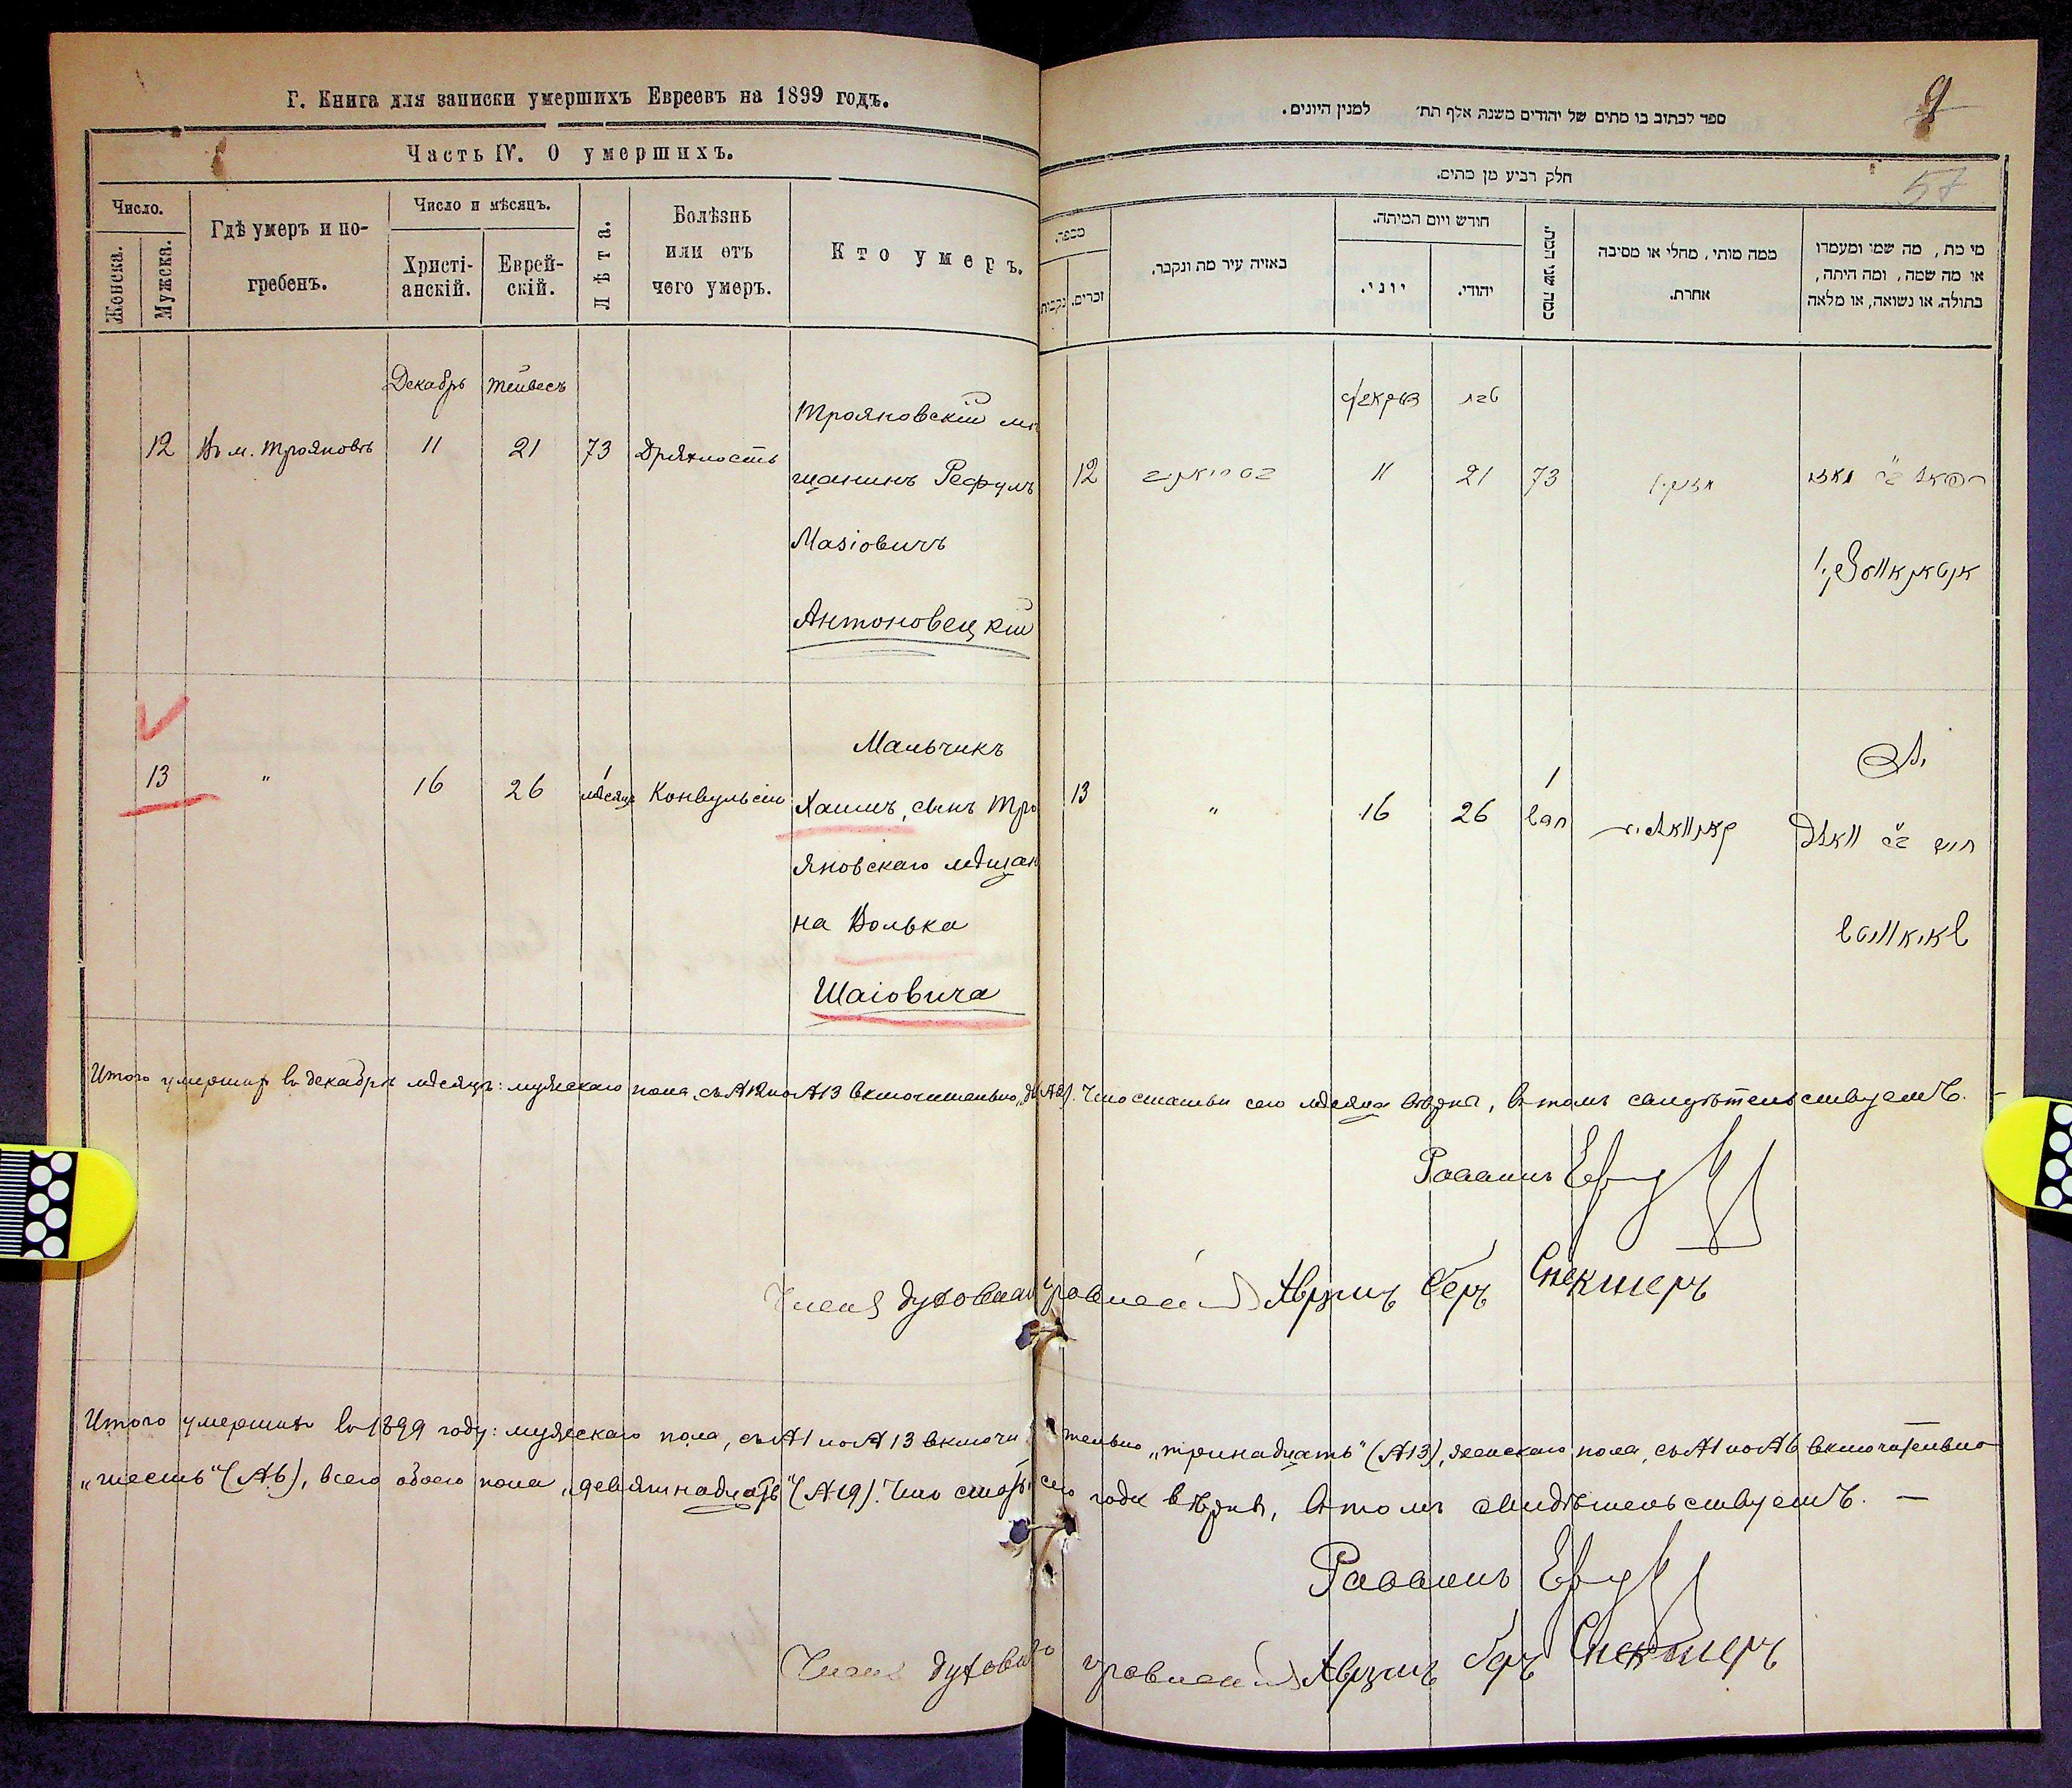 Г. Книга для записки умершихъ Евреевъ на 1899 годъ.
Часть IV. О умершихъ.
Число.
Женска.
Мужска.
Гдѣ умеръ и по-
гребенъ.
Число и мѣсяцъ.
Христі-
анскій.
Еврей-
скій.
Лѣта.
Болѣзнь
или отъ
чего умеръ.
Кто умеръ.
Декабрь Тейвесъ
12 Въ м. Трояновѣ 11 21 73 Дряхлость
Трояновскій мѣ
щанинъ Рефулъ
Антоновецкій
13 " 16 26 1 мѣсяцъ Конвульсіи
Мальчикъ
Хаимъ, сынъ Тро
яновскаго мѣщан
на Волька
Шаіовича
ספר לכתוב בו מתים של יהודים משנת אלף תת׳ למנין היונים.
9
57
חלק רביע מן מתים.
מספר.
נקבות
זכרים.
באיזה עיר מת ונקבר.
חודש ויום המיתה.
יוני.
יהודי.
כמה שני המת.
ממה מותו, מחלי או מסיבה
אחרת.
מי מת, מה שמו ומעמדו
או מה שמה, ומה היתה,
בתולה, או נשואה, או מלאה
דעקאבער טבת
12 11 21 73
רפאל
13 " 16 26 1
חיים
Итого умершихъ въ декабрѣ мѣсяцѣ: мужескаго пола, съ №12 по №13 включительно, (№2). Что статьи сего мѣсяца вѣрны, въ томъ свидѣтельствуемъ. —
Раввинъ
Членъ духовнаго правленія Аврумъ Беръ Спекторъ
Итого умершихъ въ 1899 году: мужескаго пола, съ №1 по №13 включительно „тринадцать" (№13), женскаго пола, съ №1 по №6 включительно
„шесть" (№6), всего обоего пола „девятнадцать" (№19). Что статьи сего года вѣрны, въ томъ свидѣтельствуемъ. —
Раввинъ
Членъ духовнаго правленія Аврумъ Беръ Спекторъ